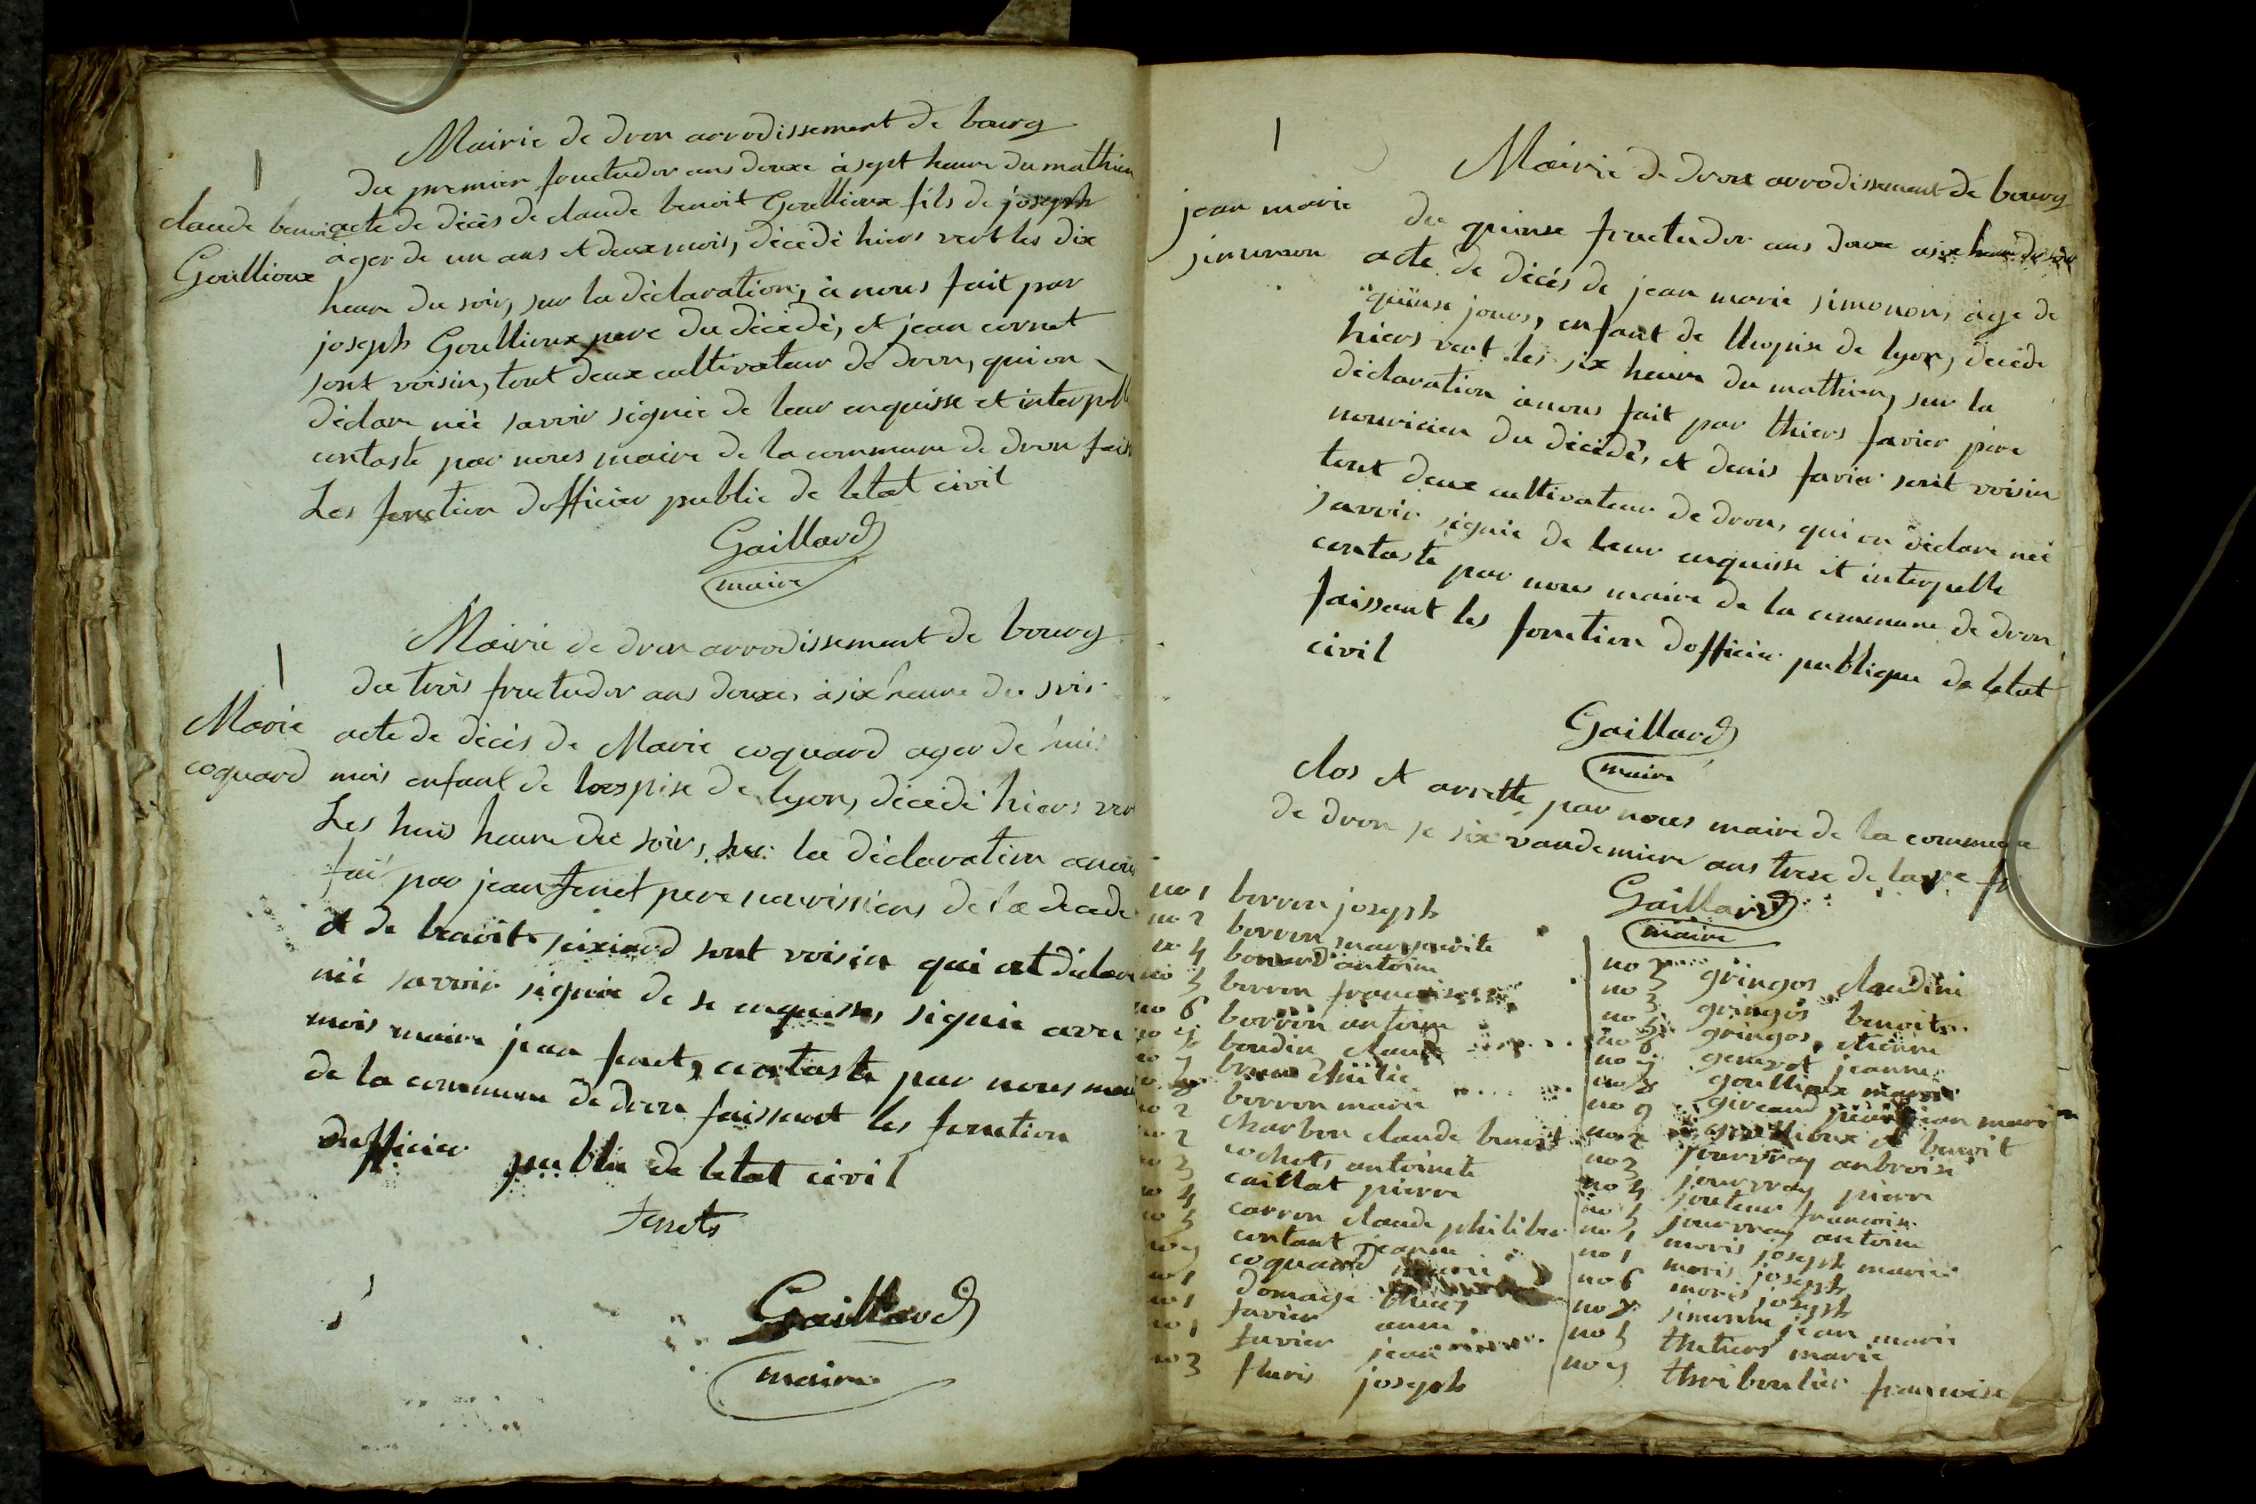 Mairie de dron arrodissement de bourg
du premier fructudor ans douxe à sept heure du mathien
claude benoit
Goullioux
acte de décès de claude benoit Goullioux fils de joseph
àger de un ans et deux mois, décédé hiers vert les dix
heure du soir, sur la déclaration, à nous fait par
joseph Goullioux pere du décédé, et jean cornet
sont voisin, tout deux cultivateur de dron, qui on
déclare néé savoir signée de leur enquisse et interpelle
contasté par nous maire de la commune de dron fais
Les fonction dofficier public de letat civil
Gaillard
maire
Mairie de dron arrodissement de bourg
du trois fructudor ans douxe, à six heure du soir
Marie
coquard
acte de décès de Marie coquard ager de huis
mois enfant de loespise de lyon, décédé hiers ver
Les huis heure du soir, sur la déclaration anous
fai par jean fenet pere nourissiens de la decede
et de benoit sont voisin qui ont déclare
néé savoir signée de se enquisse, signée avec
mois maire jean fenet, contasté par nous mai
de la commune de dron faissent les fonction
dofficier public de letat civil
fenets
Gaillard
maire
Mairie de dron arrodissement de bourg
jean marie
simonon
du quinse fructudor ans douxe a six heure du soir
acte de décès de jean marie simonon, àgé de
quinse jours, enfant de lleopise de lyon, décédé
hiers vert les six heure du mathien, sur la
déclaration ànous fait par thiers favier père
nouricien du décédé, et denis favier sont voisin
tout deux cultivateur de dron, qui on déclare néé
savoir signée de leur enquisse et interpelle
contasté par nous maire de la commune de dron
faissent les fonction dofficier publique de letat
civil
Gaillard
maire
clos et arretté par nous maire de la commune
de dron se six vandemiere ans trese de la
Gaillard
maire
no 1 borron joseph
no 2 borron marguerite
no 4 bonard antoine
no 5 borron francoise
no 6 borron antoine
boudin claud
borron marie
no 2 charbon claude benoit
no 2 cochets antoinete
no 3 caillat pierre
no 4 carron claude philiber
no 5 contant jeanne
coquard marie
no 1 domage thierz
no 1 favier anne
no 1 favier jean
no 3 fluris joseph
gringos claudine
no 3 gringos benoits
gringos etienne
genevot jeanne
goullioux marie
no 9 gireaud jean marie
goullioux c benoit
no 3 jourvray anbroise
no 4 jourvray pierre
jouteur francois
no 5 jourvray antoine
no 1 moris joseph marie
moris joseph
no 6 moris joseph
simonon jean marie
no 5 thetiers marie
thiboulier francoise